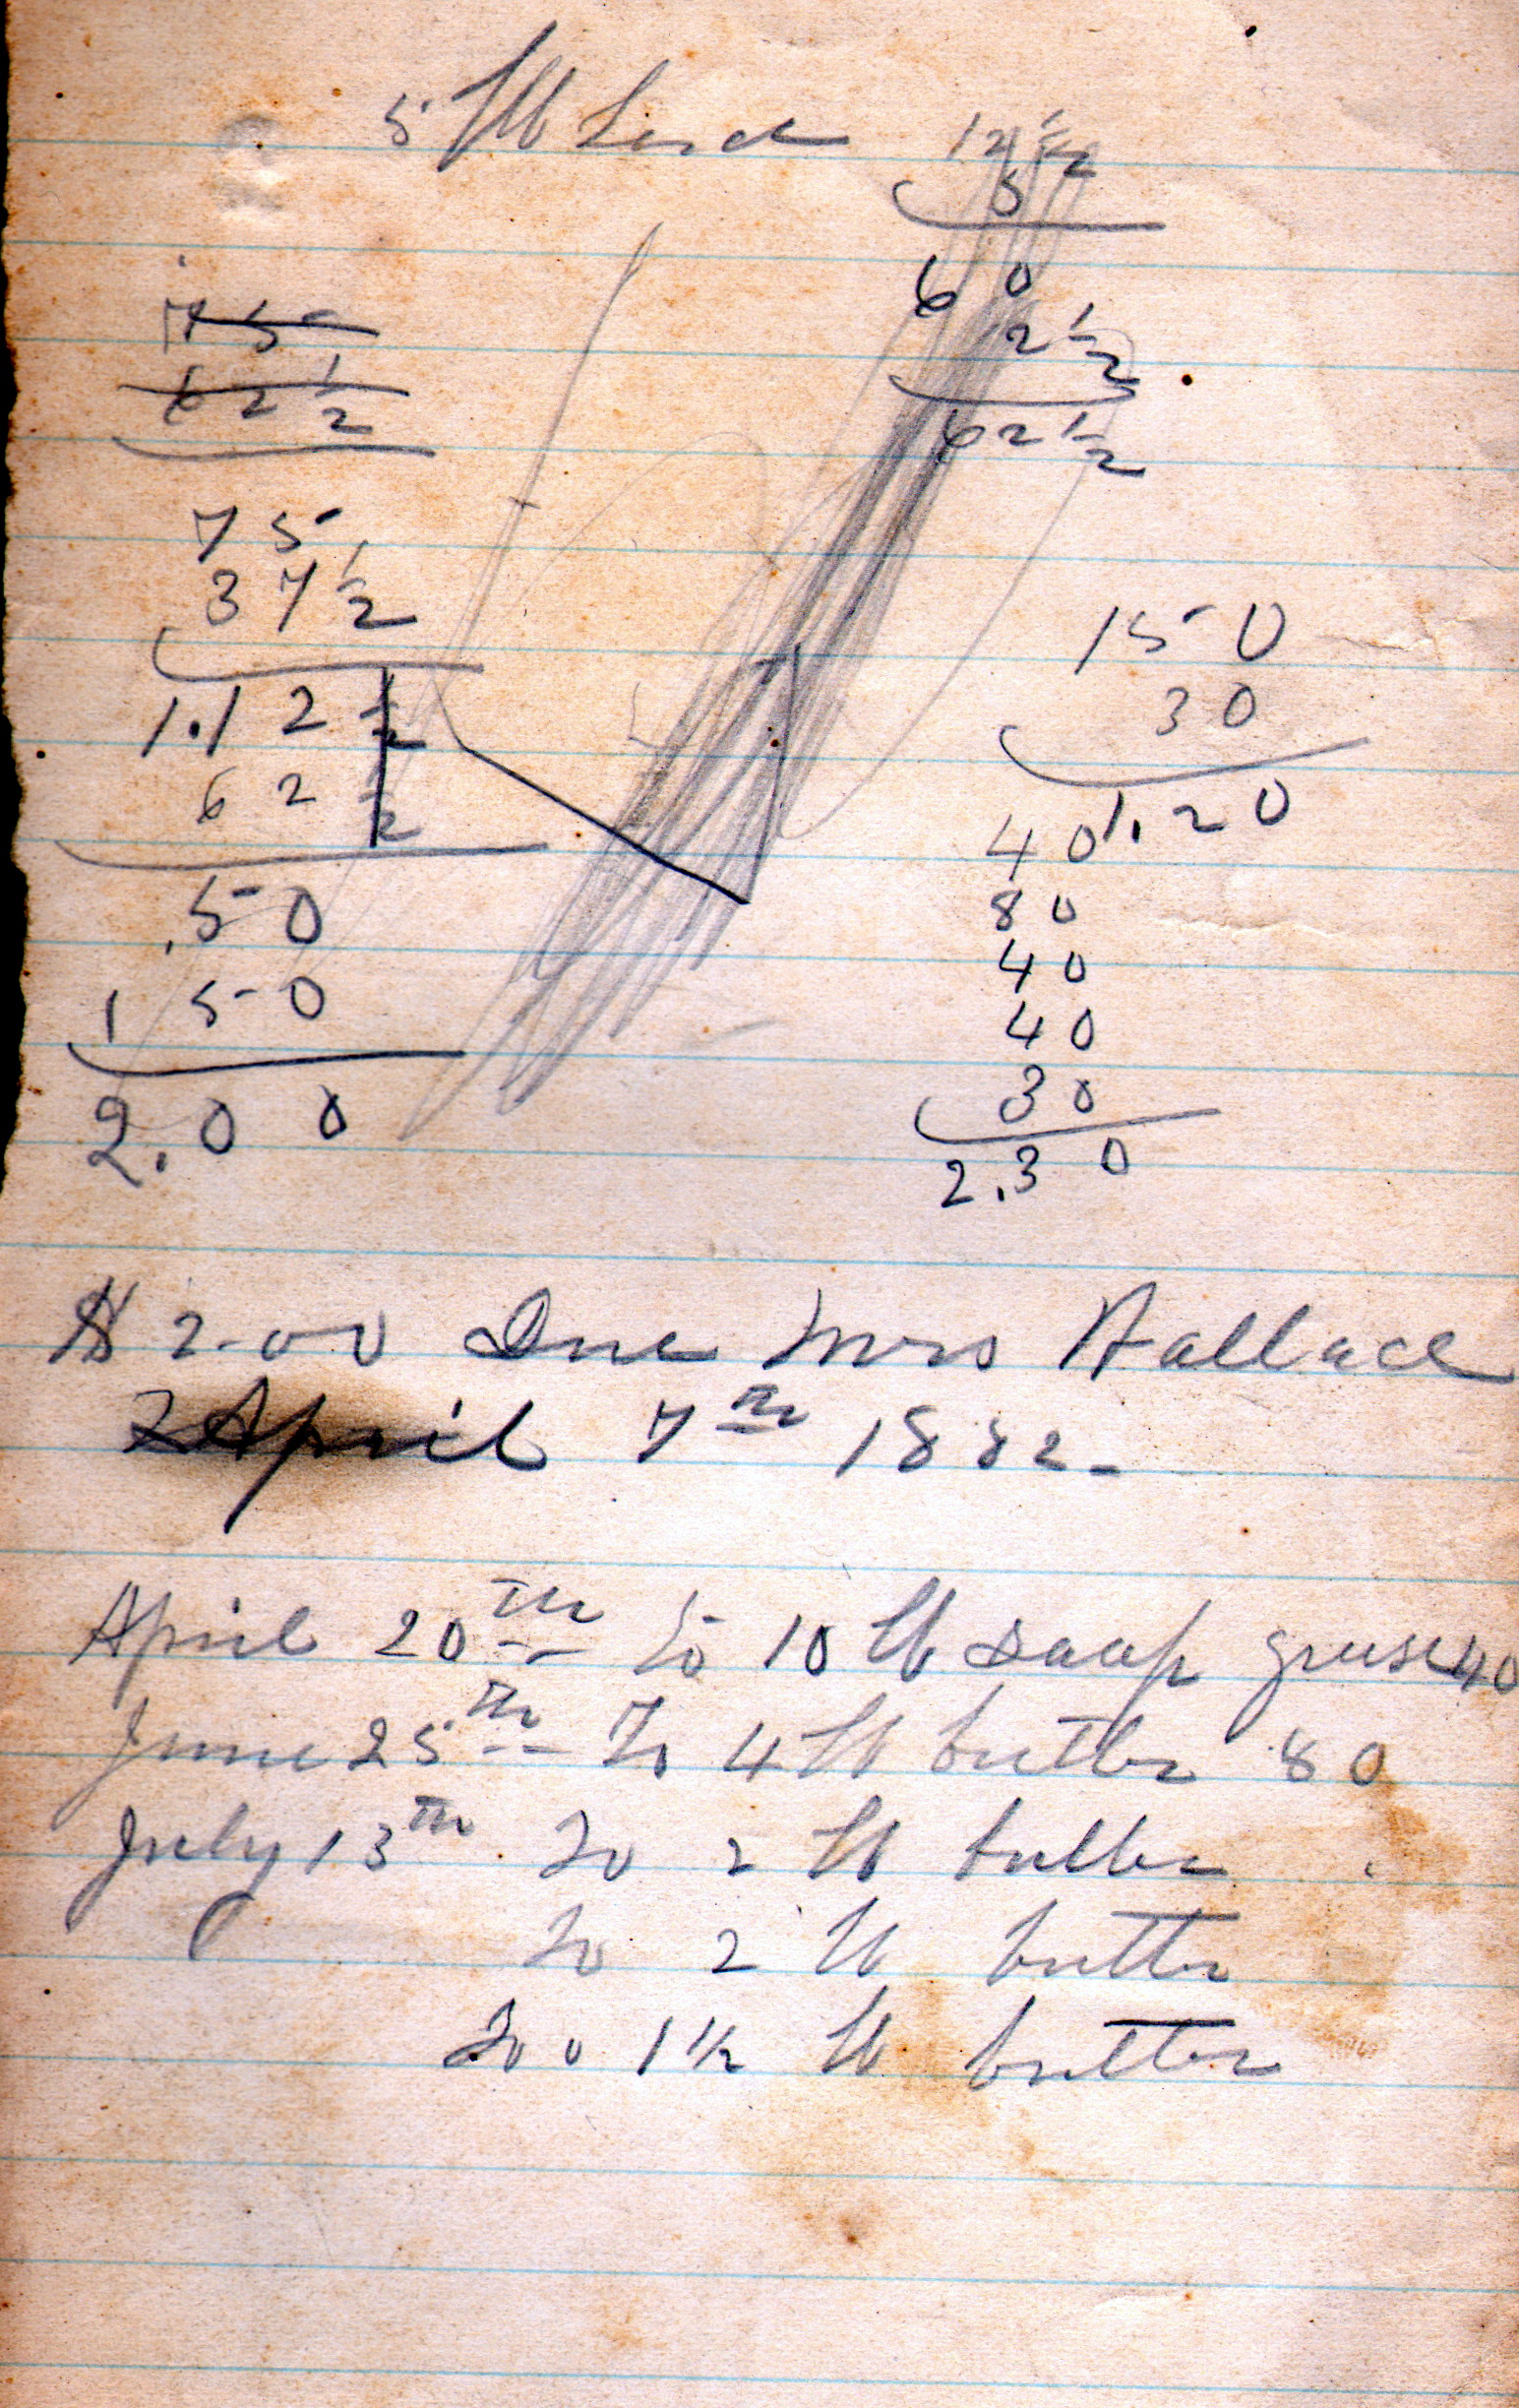 5 lb Lard 12 1/2
5
60
2 1/2
62 1/2
75
62 1/2
75
37 1/2
1.12 1/2
62 1/2
.50
1 50
2.00
150
30
1.20
40
80
40
40
30
2.30
$2.00 Due Mrs Wallace
April 7th 1882-
April 20th to 10 lb soap grese 40
June 25th To 4 lb butter 80
July 13th To 2 lb butter
To 2 lb butter
To 1 1/2 lb butter